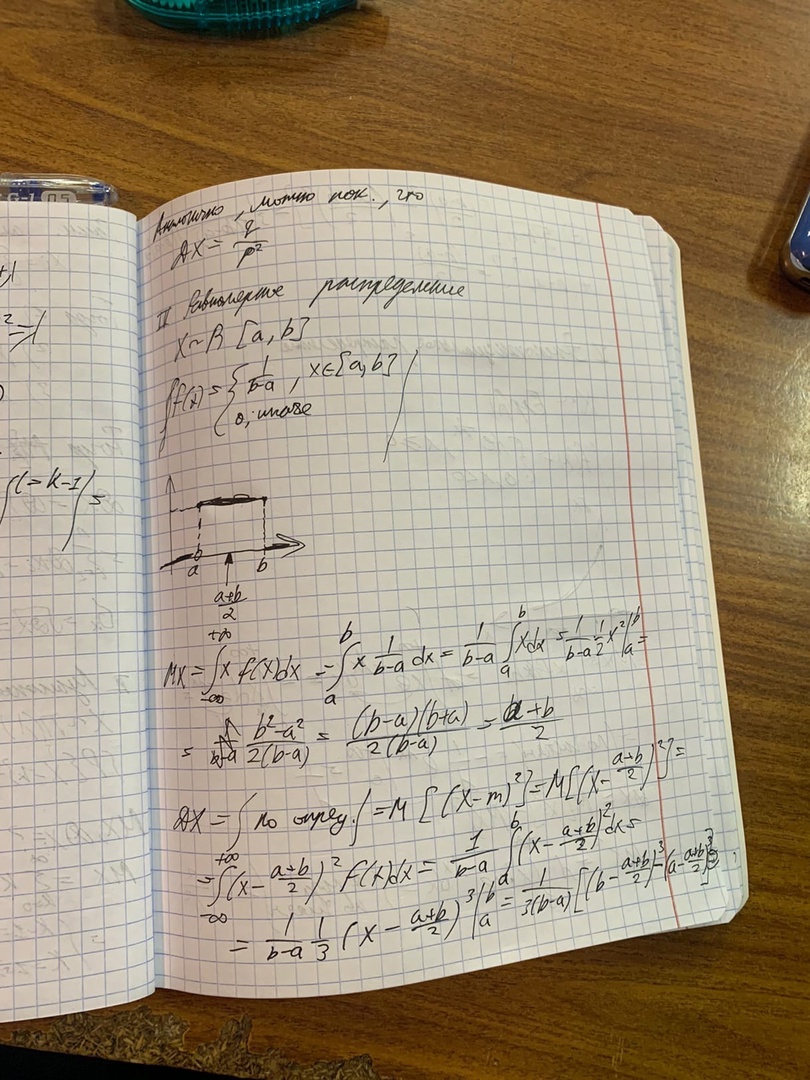 G-1 0.5
(=k-1)=
Аналогично, можно пок., что
DX = q/p²
IV Равномерное распределение
X ~ R [a, b]
f(x) = { 1/(b-a), x∈[a,b]
0, иначе
a b
(a+b)/2
MX = ∫_{-∞}^{+∞} x f(x)dx = ∫_a^b x 1/(b-a) dx = 1/(b-a) ∫_a^b xdx = 1/(b-a) 1/2 x² |_a^b =
= (b²-a²)/(2(b-a)) = (b-a)(b+a)/(2(b-a)) = (a+b)/2
DX = / по опред. / = M [(X-m)²] = M[(X-(a+b)/2)²] =
= ∫_{-∞}^{+∞} (x-(a+b)/2)² f(x)dx = 1/(b-a) ∫_a^b (x-(a+b)/2)² dx =
= 1/(b-a) 1/3 (x - (a+b)/2)³ |_a^b = 1/(3(b-a)) [(b-(a+b)/2)³-(a-(a+b)/2)³]